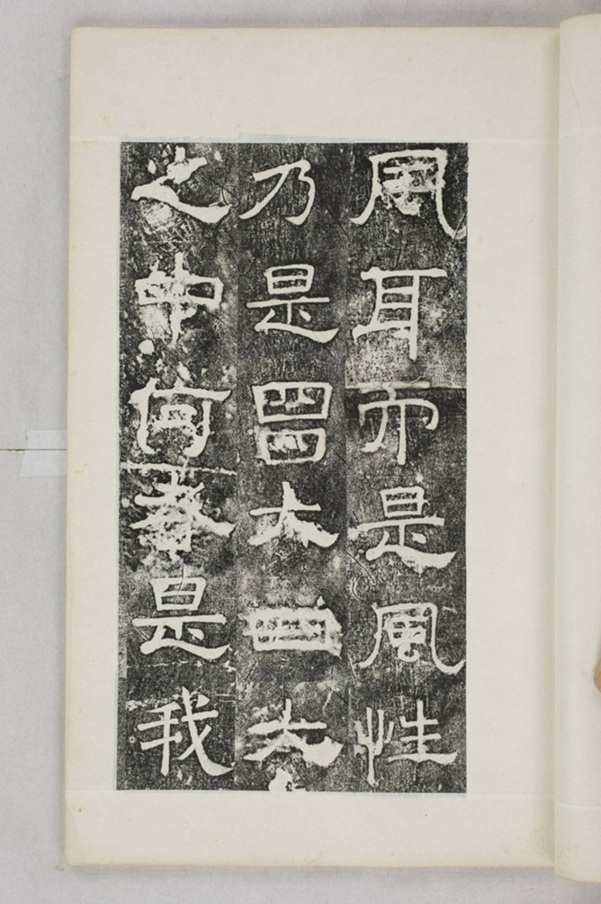 風耳亦是風性
乃是四大四大
之中何者是我